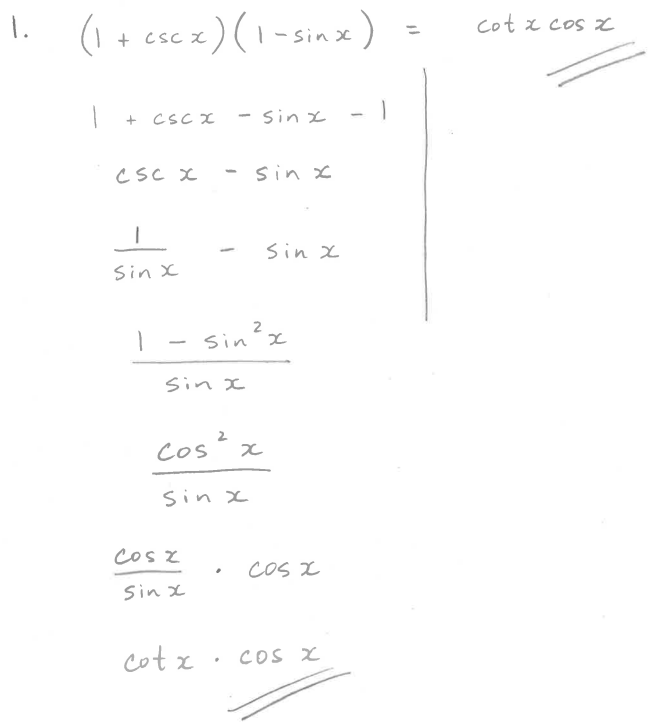 1. (1 + csc x)(1 - sin x) = cot x cos x
1 + csc x - sin x - 1
csc x - sin x
1/sin x - sin x
(1 - sin² x)/sin x
cos² x/sin x
cos x/sin x · cos x
cot x · cos x